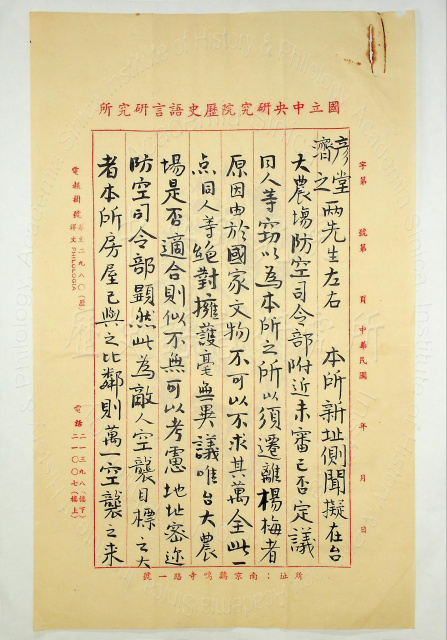 國立中央研究院歷史語言研究所
字第 號第 頁中華民國 年 月 日
彥堂
濟之 兩先生左右 本所新址側聞擬在台
大農場防空司令部附近未審已否定議
同人等竊以為本所之所以須遷離楊梅者
原因由於國家文物不可以不求其萬全此一
点同人等絕對擁護毫無異議唯台大農
場是否適合則似不無可以考慮地址密邇
防空司令部顯然此為敵人空襲目標之大
者本所房屋已與之比鄰則萬一空襲之來
電報掛號
二九八〇
PHILOLOGIA
電話
二一三九八(樓下)
二一〇〇七(樓上)
所址:南京鷄鳴寺路一號